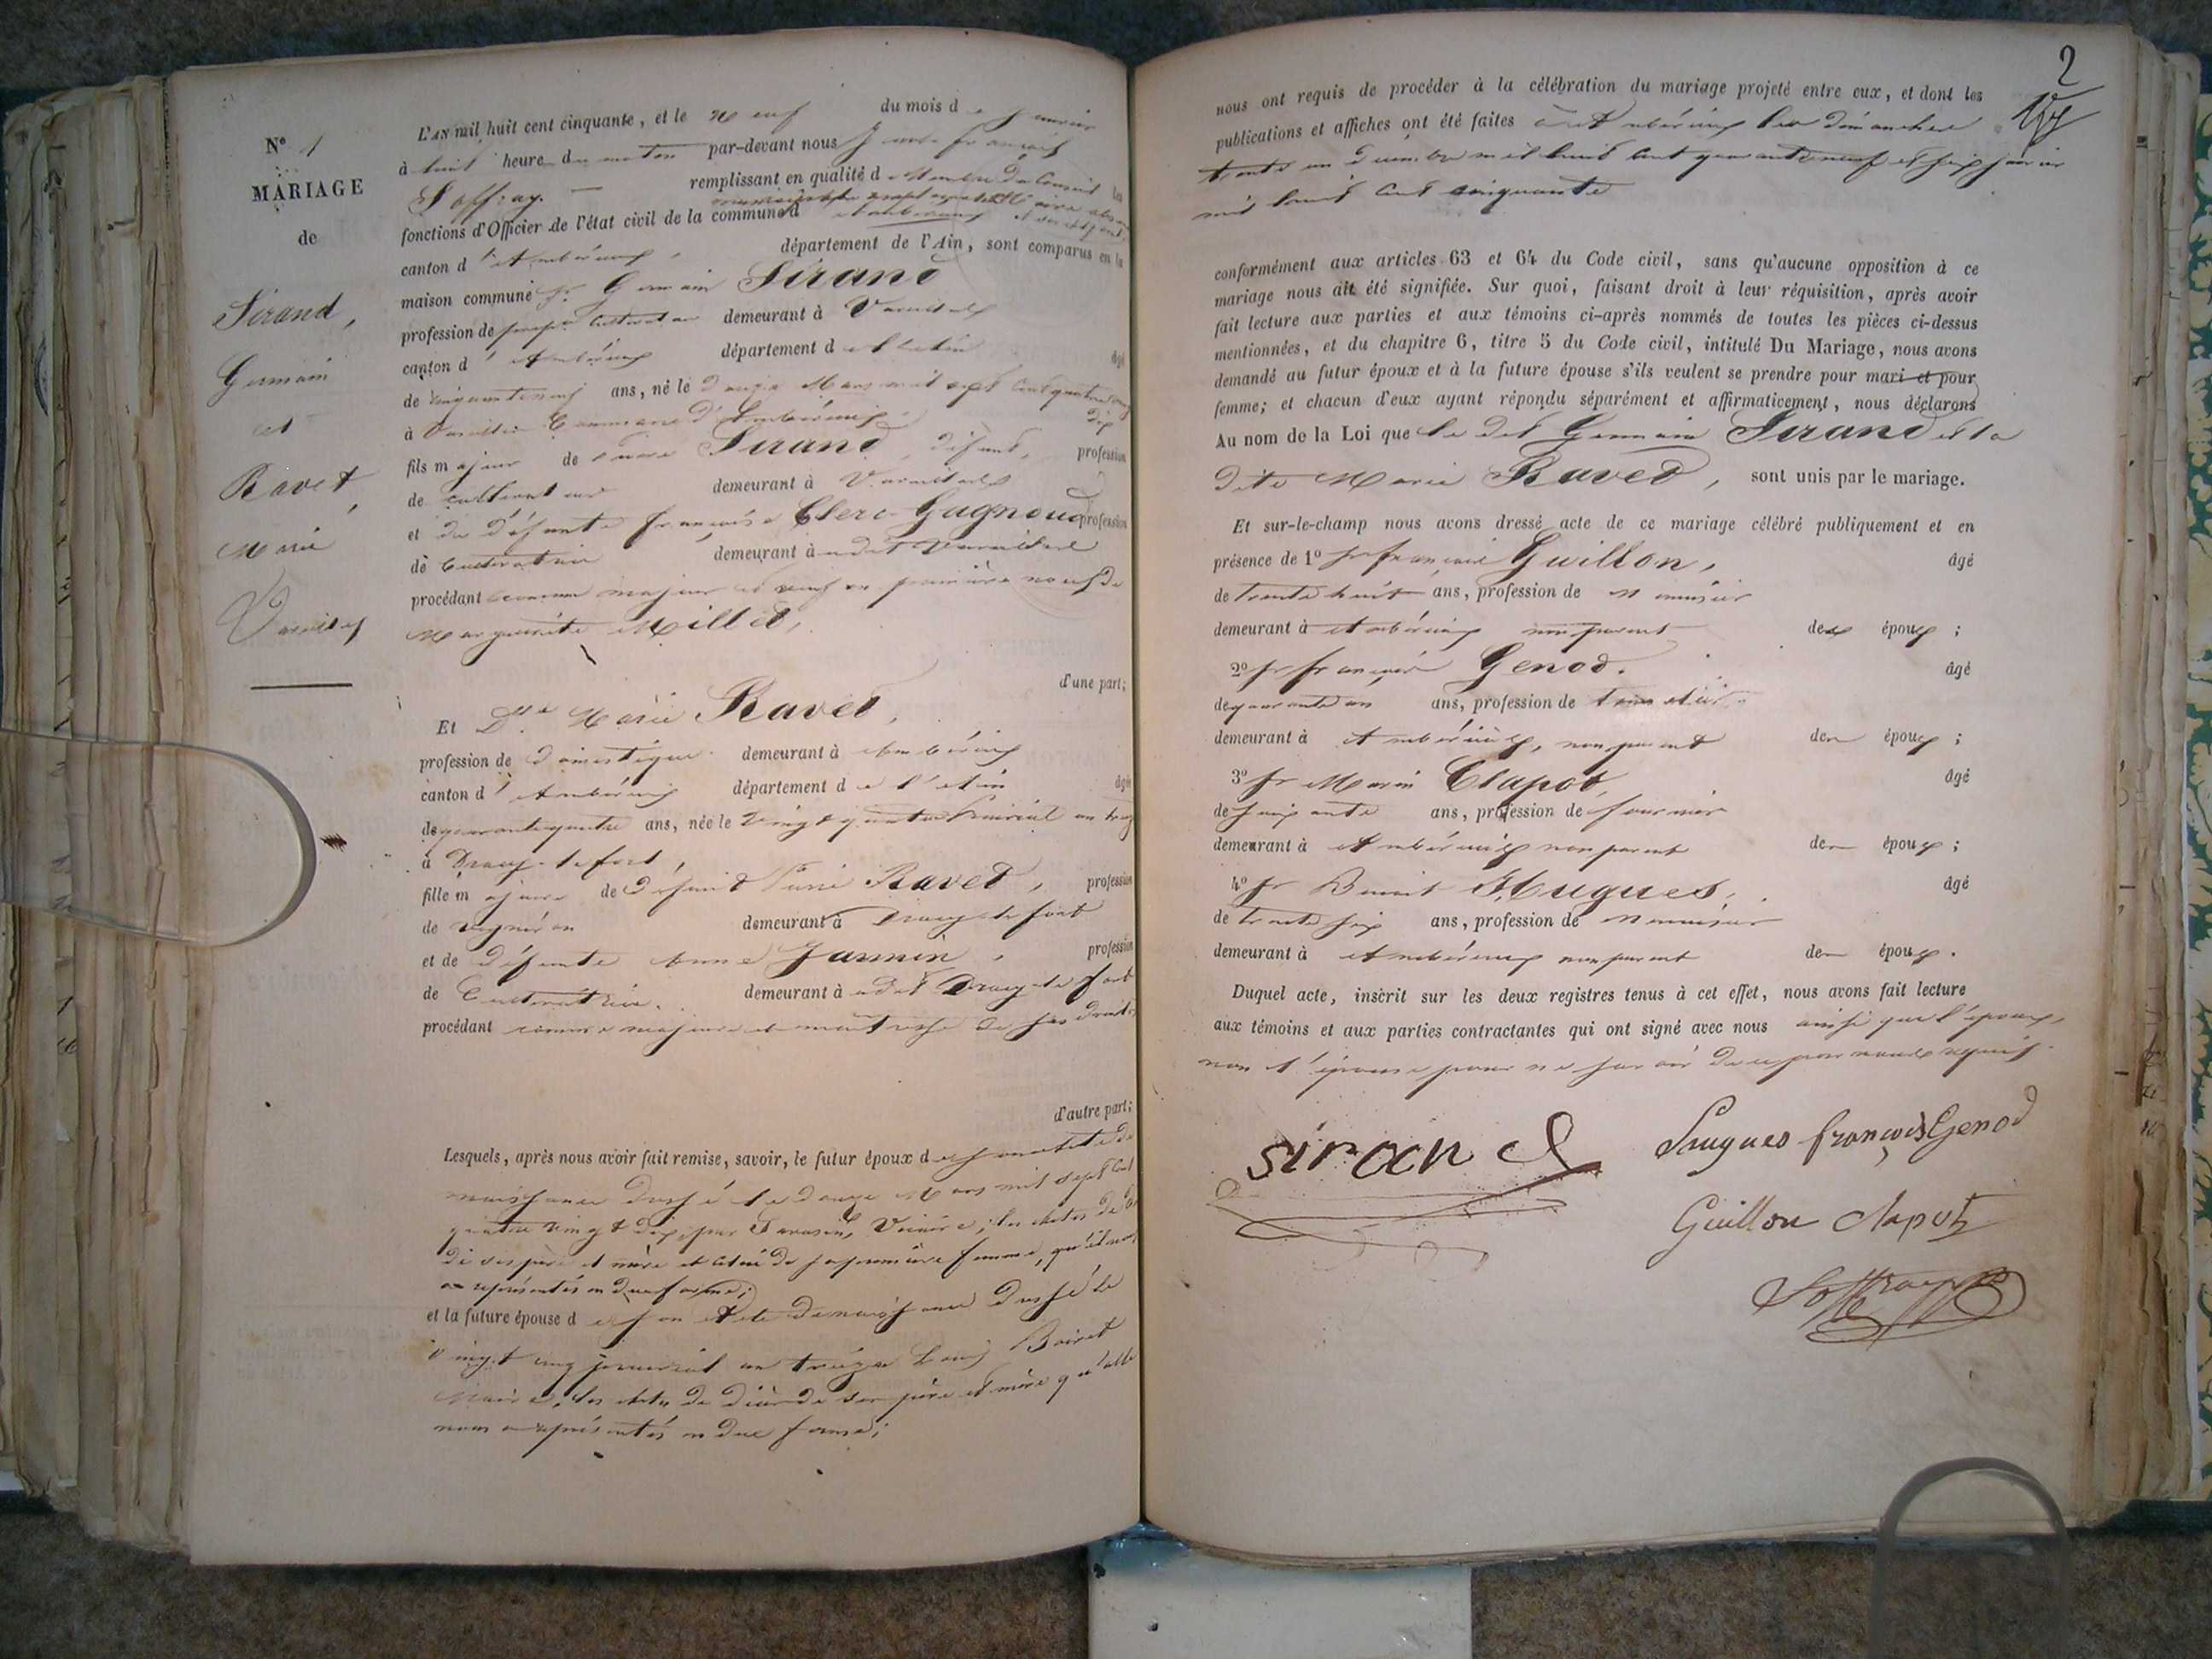 N° 1
MARIAGE
de
Sirand,
Germain
et
Ravet,
Marie
L'AN mil huit cent cinquante, et le neuf du mois de janvier
à huit heure du matin par-devant nous français
Soffray. remplissant en qualité d membre du Conseil les
fonctions d'Officier de l'état civil de la commune d'ambérieux
canton d'Ambérieux, département de l'Ain, sont comparus en la
maison commune Sr Germain Sirand
profession de cultivateur demeurant à Vareilles
canton d'Ambérieux département de l'Ain âgé
de cinquante neuf ans, né le douze Mars mil sept cent quatre vingt
dix
à Vareilles Commune d'Ambérieux
fils majeur de Sirand, défunt, profession
de cultivateur demeurant à Vareilles
et de défunte françoise Clerc-Gagnoud profession
de Cultivatrice demeurant à udit Vareilles
procédant comme majeur et veuf en première noces de
Marguerite Millet,
d'une part;
Et Dlle Marie Ravet,
profession de domestique demeurant à Ambérieux
canton d'Ambérieux département de l'Ain âgée
de quarante quatre ans, née le vingt quatre Prairial an treize
à Dracy-le fort,
fille majeure de défunt Pierre Ravet, profession
de vigneron demeurant à Dracy le fort
et de défunte Anne Jannin, profession
de Cultivatrice. demeurant à udit Dracy le fort
procédant comme majeure et maitresse de ses droits
d'autre part;
Lesquels, après nous avoir fait remise, savoir, le futur époux de son acte de
naissance dressé le douze Mars mil sept cent
quatre vingt dix, par Vicaire; les actes de décès
de ses père et mère et celui de sa première femme, qu'il nous
a représentés en due forme;
et la future épouse de son acte de naissance dressé le
vingt cinq prairial an treize par Boiret
Maire, les actes de décès de ses père et mère qu'elle
nous a représentés en due forme;
2
nous ont requis de procéder à la célébration du mariage projeté entre eux, et dont les
publications et affiches ont été faites à Ambérieux les dimanches
trente un décembre mil huit cent quarante neuf et six janvier
mil huit cent cinquante
conformément aux articles 63 et 64 du Code civil, sans qu'aucune opposition à ce
mariage nous ait été signifiée. Sur quoi, faisant droit à leur réquisition, après avoir
fait lecture aux parties et aux témoins ci-après nommés de toutes les pièces ci-dessus
mentionnées, et du chapitre 6, titre 5 du Code civil, intitulé Du Mariage, nous avons
demandé au futur époux et à la future épouse s'ils veulent se prendre pour mari et pour
femme; et chacun d'eux ayant répondu séparément et affirmativement, nous déclarons
Au nom de la Loi que le dit Germain Sirand et la
dite Marie Ravet, sont unis par le mariage.
Et sur-le-champ nous avons dressé acte de ce mariage célébré publiquement et en
présence de 1° Sr françois Guillon, âgé
de trente huit ans, profession de menuisier
demeurant à Ambérieux non parent des époux;
2° Sr françois Genod. âgé
de quarante un ans, profession de
demeurant à Ambérieux, non parent des époux;
3° Sr Marin Clapot, âgé
de soixante ans, profession de fournier
demeurant à Ambérieux non parent des époux;
4° Sr Benoit Hugues, âgé
de trente six ans, profession de menuisier
demeurant à Ambérieux non parent des époux.
Duquel acte, inscrit sur les deux registres tenus à cet effet, nous avons fait lecture
aux témoins et aux parties contractantes qui ont signé avec nous ainsi que l'époux,
non l'épouse pour ne savoir de ce par nous requis.
sirand hugues françois Genod
Guillon clapot
Soffray